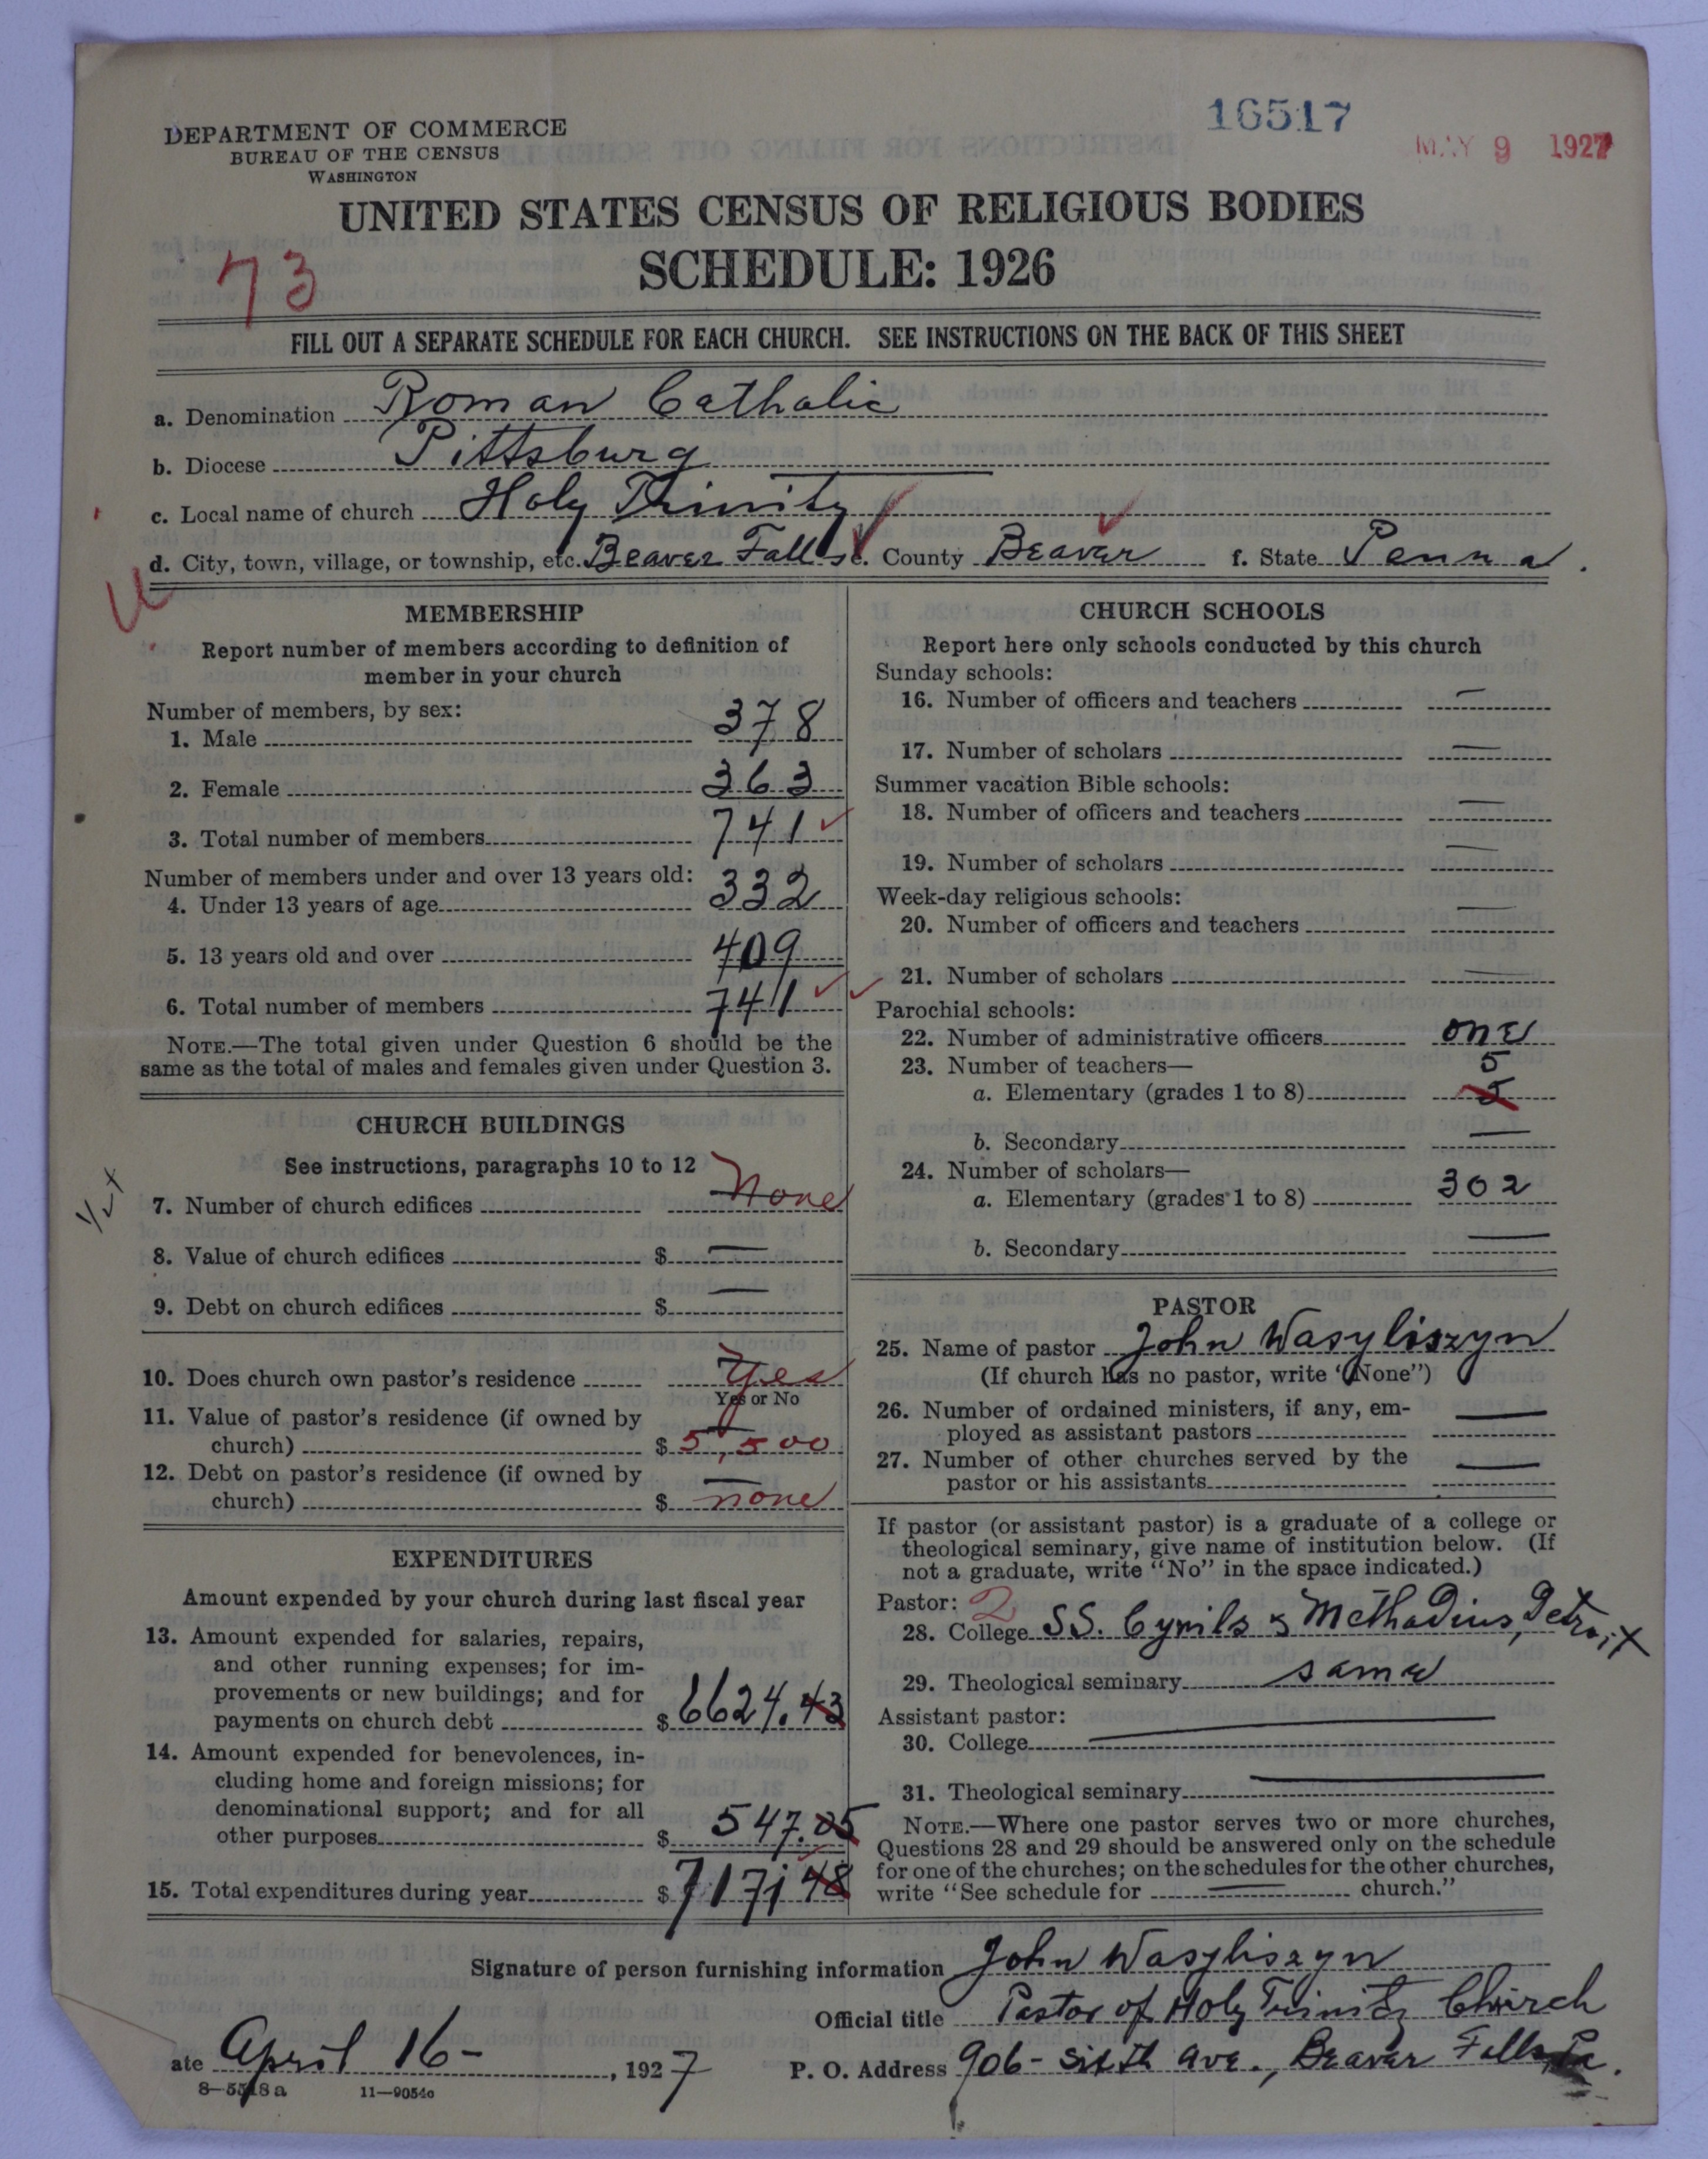 16517
MAY 9 1927
DEPARTMENT OF COMMERCE
BUREAU OF THE CENSUS
WASHINGTON
UNITED STATES CENSUS OF RELIGIOUS BODIES
SCHEDULE: 1926
73
FILL OUT A SEPARATE SCHEDULE FOR EACH CHURCH. SEE INSTRUCTIONS ON THE BACK OF THIS SHEET
a. Denomination Roman Catholic
b. Diocese Pittsburg
c. Local name of church Holy Trinity
d. City, town, village, or township, etc. Beaver Falls e. County Beaver f. State Penna.
MEMBERSHIP
Report number of members according to definition of
member in your church
Number of members, by sex:
1. Male 378
2. Female 363
3. Total number of members 741
Number of members under and over 13 years old:
4. Under 13 years of age 332
5. 13 years old and over 409
6. Total number of members 741
NOTE.—The total given under Question 6 should be the
same as the total of males and females given under Question 3.
CHURCH BUILDINGS
See instructions, paragraphs 10 to 12
7. Number of church edifices None
8. Value of church edifices $ —
9. Debt on church edifices $ —
10. Does church own pastor's residence Yes
Yes or No
11. Value of pastor's residence (if owned by
church) $ 5,500
12. Debt on pastor's residence (if owned by
church) $ none
EXPENDITURES
Amount expended by your church during last fiscal year
13. Amount expended for salaries, repairs,
and other running expenses; for im-
provements or new buildings; and for
payments on church debt $ 6624.43
14. Amount expended for benevolences, in-
cluding home and foreign missions; for
denominational support; and for all
other purposes $ 547.05
15. Total expenditures during year $ 7171 48
CHURCH SCHOOLS
Report here only schools conducted by this church
Sunday schools:
16. Number of officers and teachers —
17. Number of scholars —
Summer vacation Bible schools:
18. Number of officers and teachers —
19. Number of scholars —
Week-day religious schools:
20. Number of officers and teachers —
21. Number of scholars —
Parochial schools:
22. Number of administrative officers one
23. Number of teachers— 5
a. Elementary (grades 1 to 8)
b. Secondary —
24. Number of scholars—
a. Elementary (grades 1 to 8) 302
b. Secondary —
PASTOR
25. Name of pastor John Wasyliszyn
(If church has no pastor, write "None")
26. Number of ordained ministers, if any, em-
ployed as assistant pastors —
27. Number of other churches served by the
pastor or his assistants —
If pastor (or assistant pastor) is a graduate of a college or
theological seminary, give name of institution below. (If
not a graduate, write "No" in the space indicated.)
Pastor: 2
28. College SS. Cyrils & Methodius, Detroit
29. Theological seminary same
Assistant pastor:
30. College —
31. Theological seminary —
NOTE.—Where one pastor serves two or more churches,
Questions 28 and 29 should be answered only on the schedule
for one of the churches; on the schedules for the other churches,
write "See schedule for — church."
Signature of person furnishing information John Wasyliszyn
Official title Pastor of Holy Trinity Church
ate April 16 - , 1927 P. O. Address 906 - Sixth Ave., Beaver Falls, Pa.
8—5518a 11—9054c